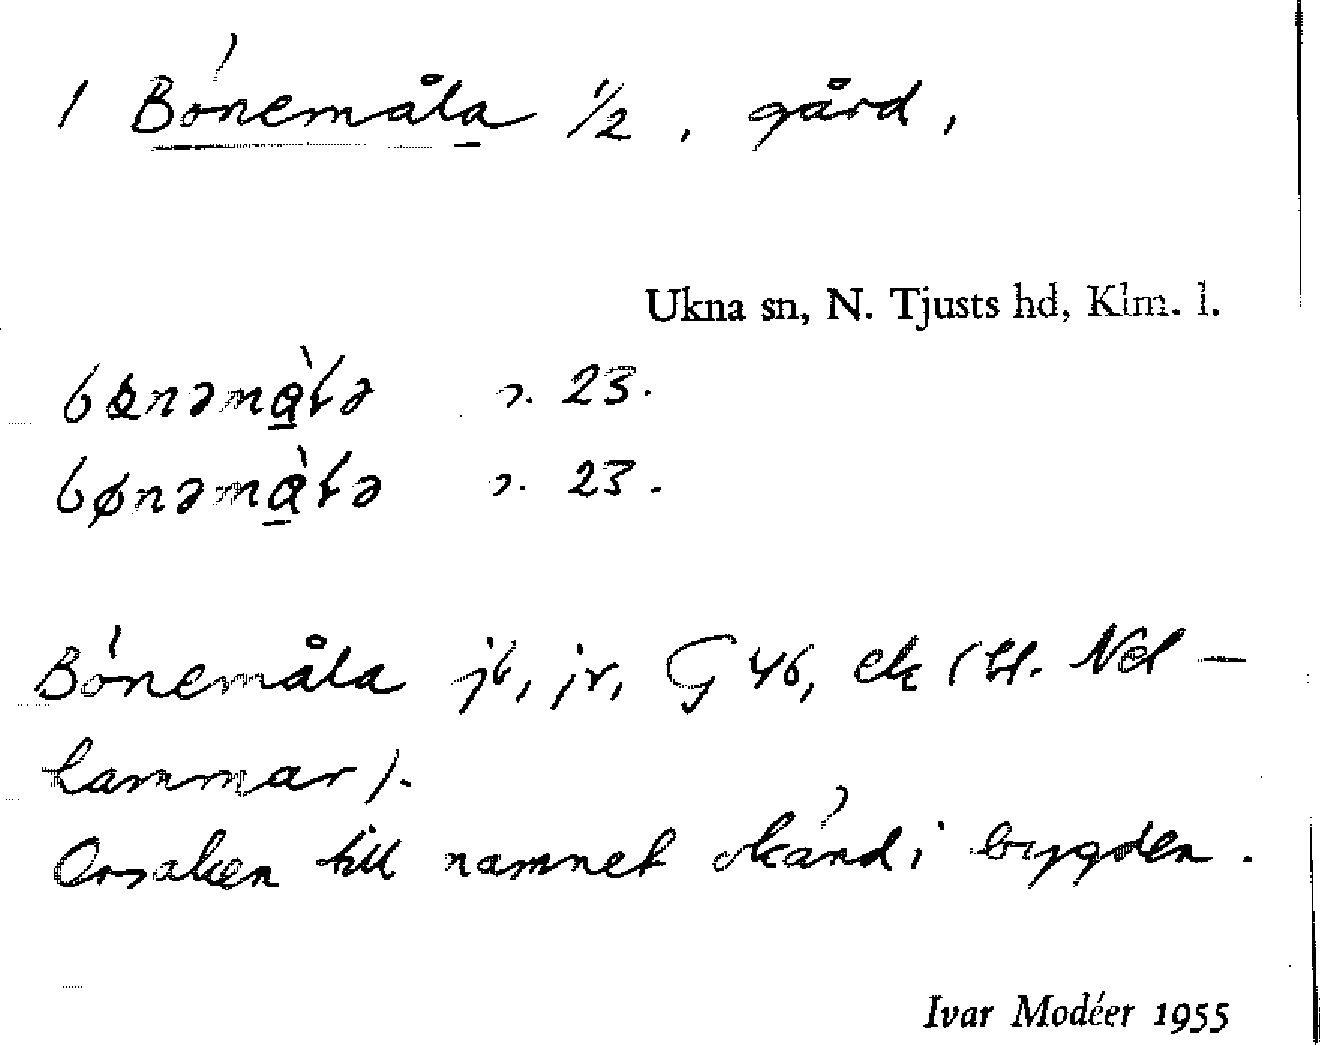 1 Bönemåla 1/2, gård,
Ukna sn, N. Tjusts hd, Klm. l.
s. 23.
s. 23.
Bönemåla jb, jr, G 46, ek (bl. Ned-
hammar).
Orsaken till namnet okänd i bygden.
Ivar Modéer 1955